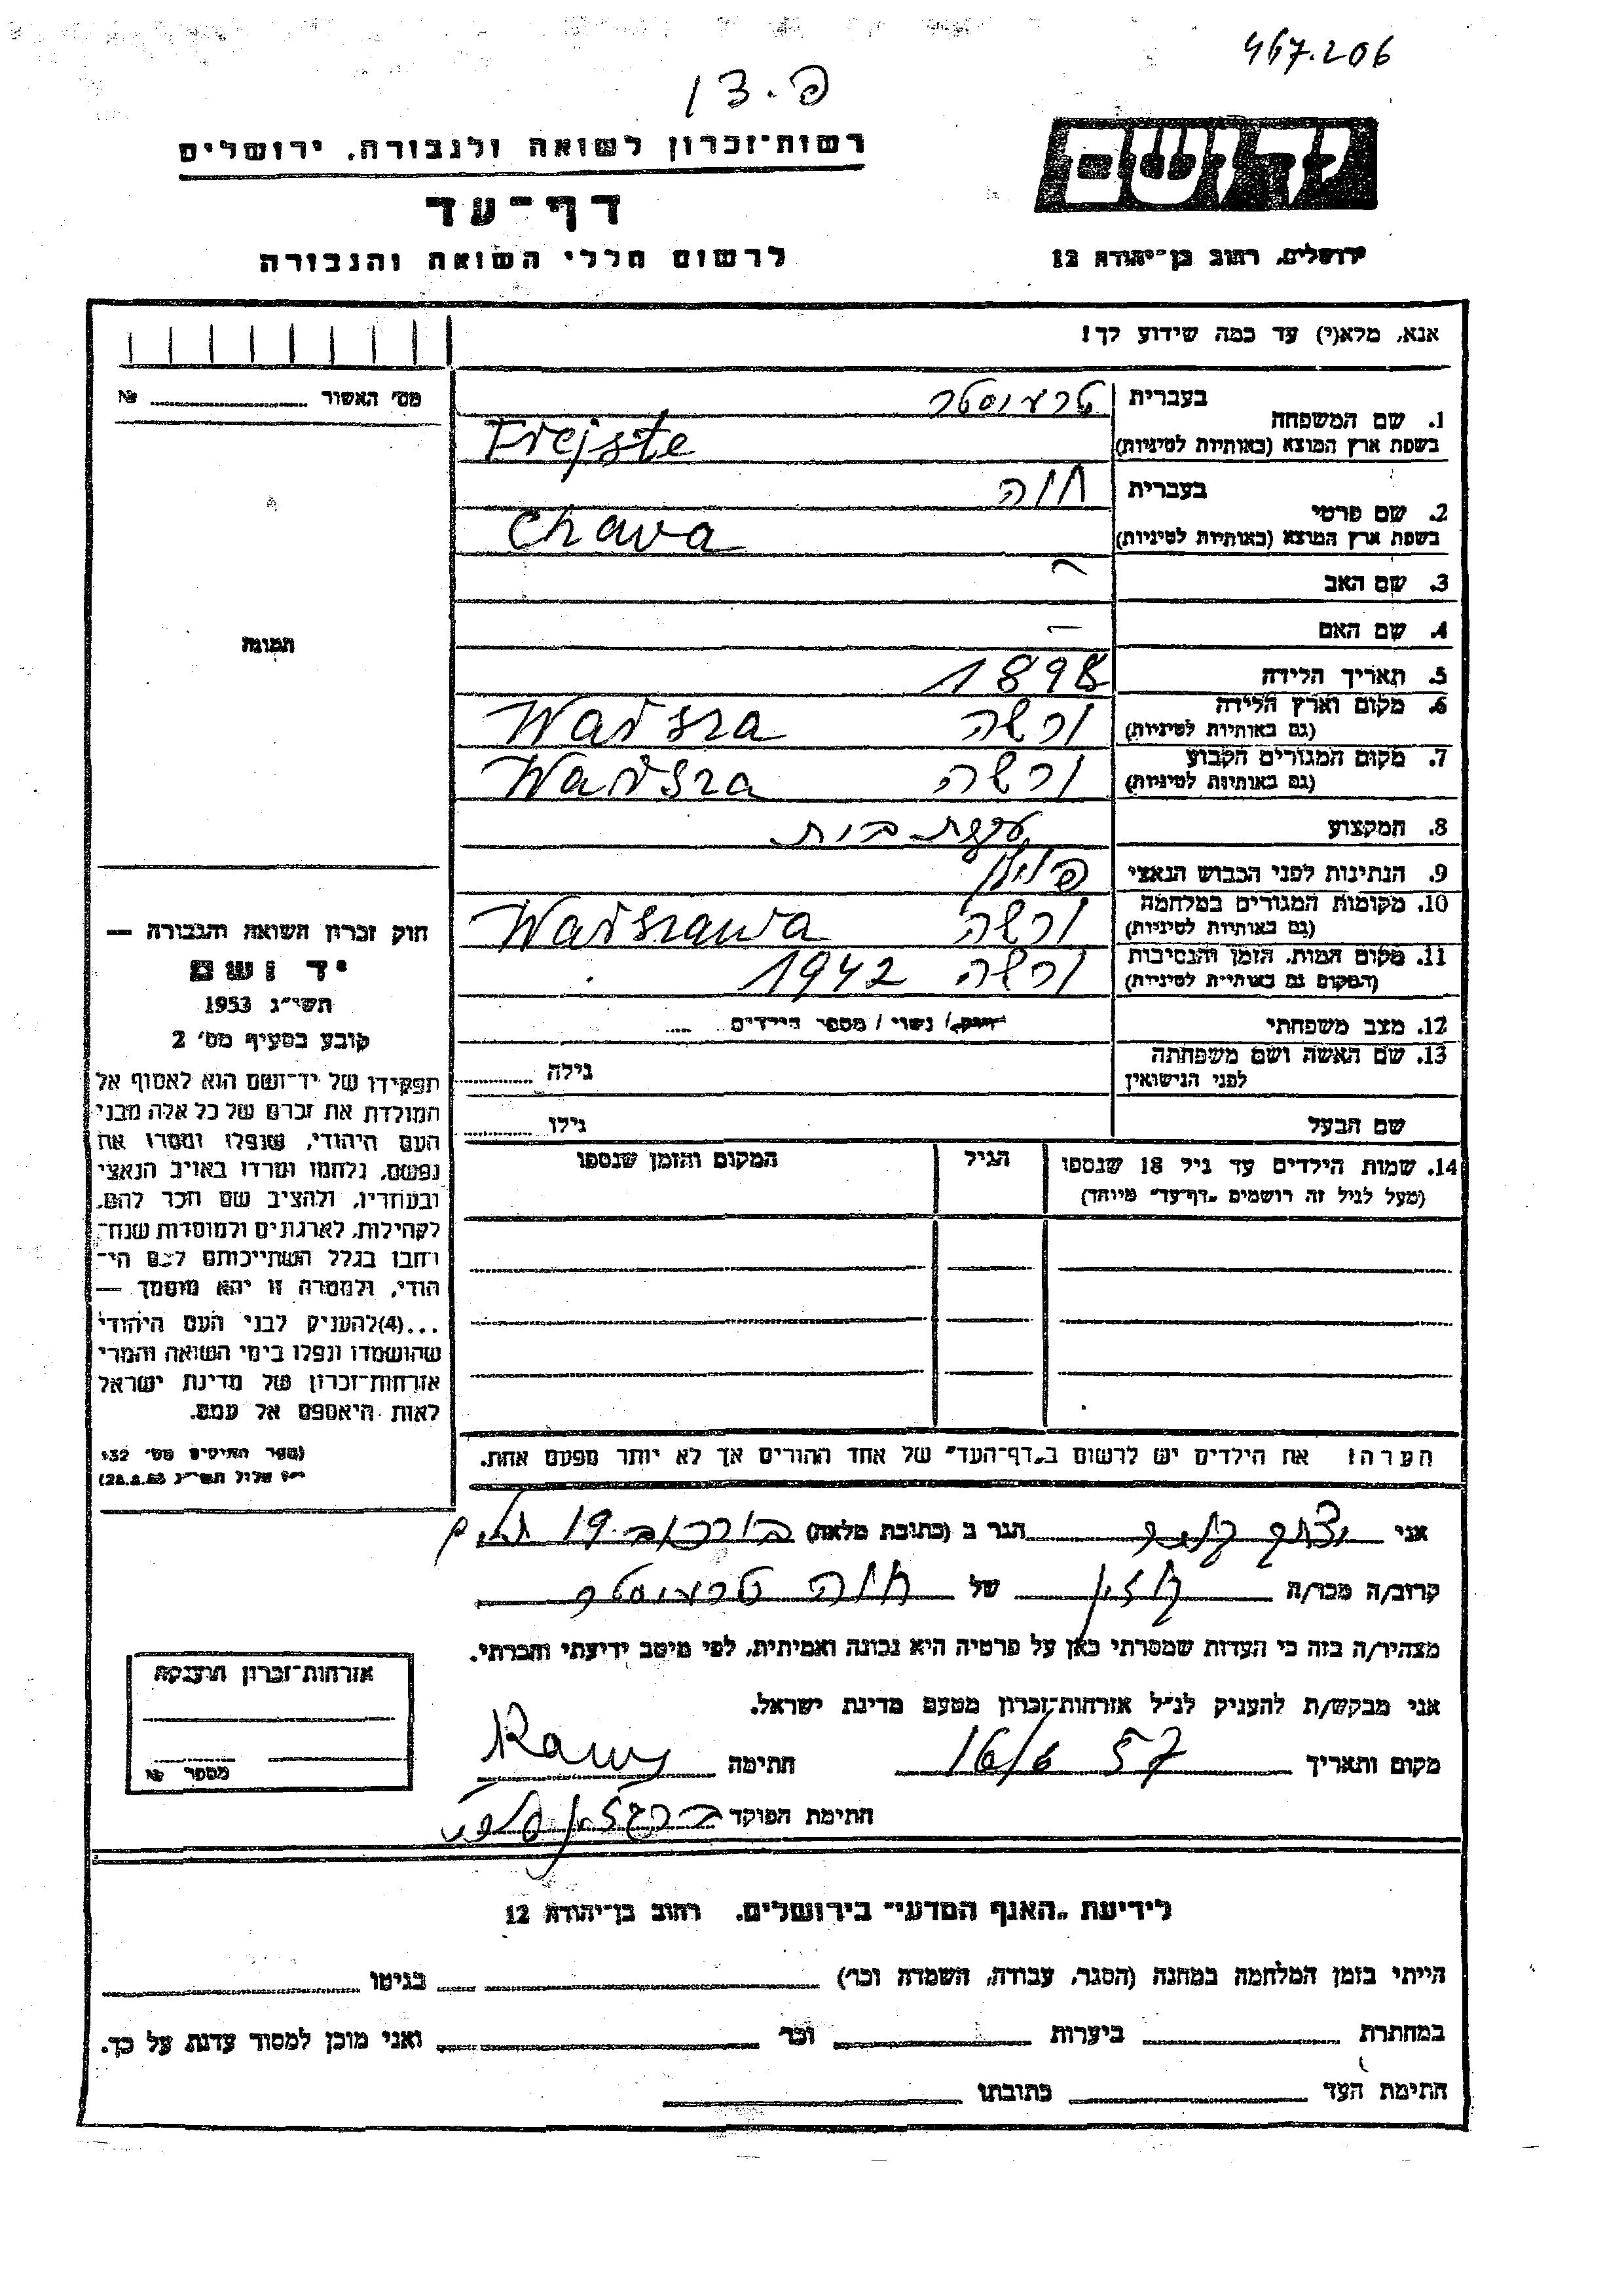 467.206
פ.צ 1
רשות־זכרון לשואה ולגבורה, ירושלים
יד ושם
דף־עד
לרשום חללי השואה והגבורה
ירושלים, רחוב בן־יהודה 12
אנא, מלא(י) עד כמה שידוע לך!
מס׳ האשור № 
1. שם המשפחה
בעברית
בשפת ארץ המוצא (באותיות לטיניות) Trejste
2. שם פרטי
בעברית חוה
בשפת ארץ המוצא (באותיות לטיניות) Chava
3. שם האב —
4. שם האם —
5. תאריך הלידה 1898
6. מקום וארץ הלידה ורשה Warsza
(גם באותיות לטיניות)
7. מקום המגורים הקבוע ורשה Warsza
(גם באותיות לטיניות)
8. המקצוע עקרת בית
9. הנתינות לפני הכבוש הנאצי פולין
10. מקומות המגורים במלחמה ורשה Warszawa
(גם באותיות לטיניות)
11. מקום המות, הזמן והנסיבות ורשה 1942
(המקום גם באותיות לטיניות)
12. מצב משפחתי רווק/ נשוי/ מספר הילדים
13. שם האשה ושם משפחתה
לפני הנישואין
גילה
שם הבעל
גילו
14. שמות הילדים עד גיל 18 שנספו
(מעל לגיל זה רושמים „דף־עד" מיוחד)
הגיל
המקום והזמן שנספו
הערה! את הילדים יש לרשום ב„דף־העד" של אחד ההורים אך לא יותר מפעם אחת.
תמונה
חוק זכרון השואה והגבורה —
יד ושם
תשי״ג 1953
קובע בסעיף מס׳ 2
תפקידו של יד־ושם הוא לאסוף אל
המולדת את זכרם של כל אלה מבני
העם היהודי, שנפלו ומסרו את
נפשם, נלחמו ומרדו באויב הנאצי
ובעוזריו, ולהציב שם וזכר להם,
לקהילות, לארגונים ולמוסדות שנח־
רבו בגלל השתייכותם לעם הי־
הודי, ולמטרה זו יהא מוסמך —
...(4)להעניק לבני העם היהודי
שהושמדו ונפלו בימי השואה והמרי
אזרחות־זכרון של מדינת ישראל
לאות היאספם אל עמם.
(ספר החוקים מס׳ 132
י״ז אלול תשי״ג 28.8.53)
אני הגר ב (כתובת מלאה) בורכוב 19
קרוב/ה מכר/ה של חוה
מצהיר/ה בזה כי העדות שמסרתי כאן על פרטיה היא נכונה ואמיתית, לפי מיטב ידיעתי והכרתי.
אני מבקש/ת להעניק לנ״ל אזרחות־זכרון מטעם מדינת ישראל.
מקום ותאריך 16/6 57 חתימה
חתימת הפוקד
אזרחות־זכרון הוענקה
מספר №
לידיעת „האגף המדעי" בירושלים, רחוב בן־יהודה 12
הייתי בזמן המלחמה במחנה (הסגר, עבודה, השמדה וכר׳) בגיטו
במחתרת ביערות וכר ואני מוכן למסור עדות על כך.
חתימת העד כתובתו